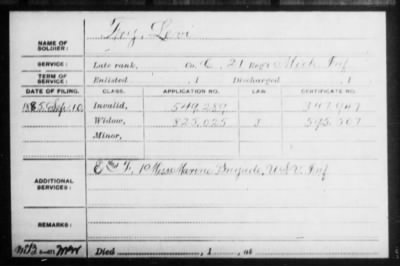 NAME OF SOLDIER: Foy, Levi
SERVICE: Late rank, Co. C, 21 Reg't Mich Inf
TERM OF SERVICE: Enlisted , 1 Discharged , 1
DATE OF FILING. CLASS. APPLICATION NO. LAW. CERTIFICATE NO.
1885 Sep. 10 Invalid, 549,289 347,947
Widow, 825,025 J 595,507
Minor,
ADDITIONAL SERVICES: 1 Miss Marine Brigade, U.S.V. Inf
REMARKS:
Died , 1 , at